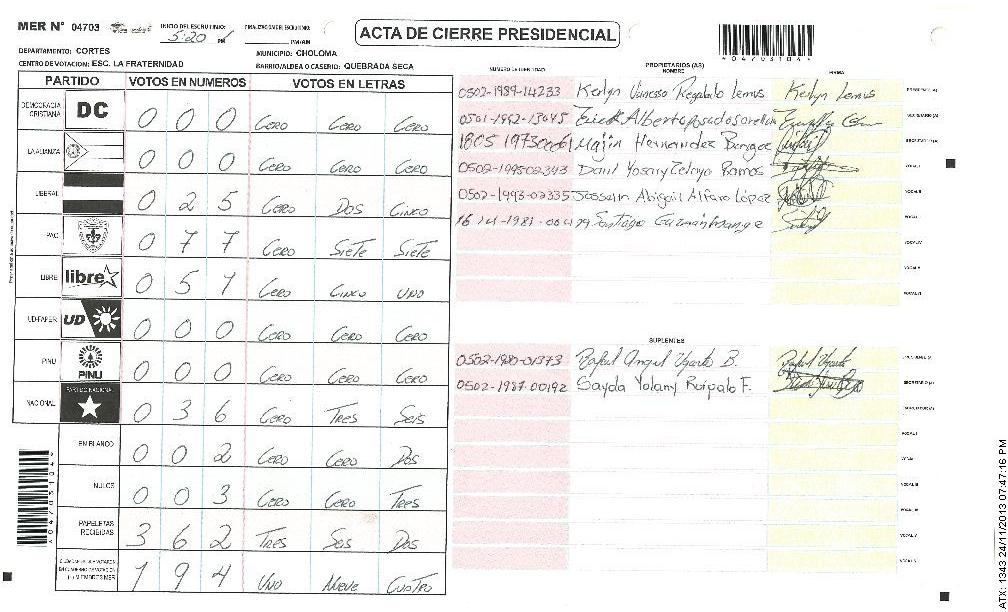 MER N° 04703
INICIO DEL ESCRUTINIO:
5:20 PM
FINALIZACION DEL ESCRUTINIO:
PM/AM
ACTA DE CIERRE PRESIDENCIAL
DEPARTAMENTO: CORTES
MUNICIPIO: CHOLOMA
CENTRO DE VOTACION: ESC. LA FRATERNIDAD
BARRIO/ALDEA O CASERIO: QUEBRADA SECA
PARTIDO VOTOS EN NUMEROS VOTOS EN LETRAS
DEMOCRACIA CRISTIANA DC 0 0 0 CERO CERO CERO
LA ALIANZA 0 0 0 CERO CERO CERO
LIBERAL 0 2 5 CERO DOS CINCO
PAC 0 7 7 CERO SIETE SIETE
LIBRE libre 0 5 1 CERO CINCO UNO
UD-FAPER UD 0 0 0 CERO CERO CERO
PINU PINU 0 0 0 CERO CERO CERO
NACIONAL PARTIDO NACIONAL 0 3 6 CERO TRES SEIS
EN BLANCO 0 0 2 CERO CERO DOS
NULOS 0 0 3 CERO CERO TRES
PAPELETAS RECIBIDAS 3 6 2 TRES SEIS DOS
1 9 4 UNO NUEVE CUATRO
NUMERO DE IDENTIDAD PROPIETARIOS (AS) NOMBRE FIRMA
0502-1989-14233 Kerlyn Vanessa Regalado Lemus Kerlyn Lemus PRESIDENTE (A)
0501-1992-13045 Erick Alberto SECRETARIO (A)
Majin Hernandez
0502-199502343 Danil Yosary Zelaya Ramos VOCAL I
0502-1993-02335 Jossein Abigail Alfaro López VOCAL II
Santiago Guzmán
VOCAL IV
VOCAL V
VOCAL VI
SUPLENTES
0502-1980-01373 Rafael Angel Ugarte B. Rafael Ugarte
0502-1987-00192 Sayda Yolany F. SECRETARIO (A)
ATX: 1343 24/11/2013 07:47:16 PM